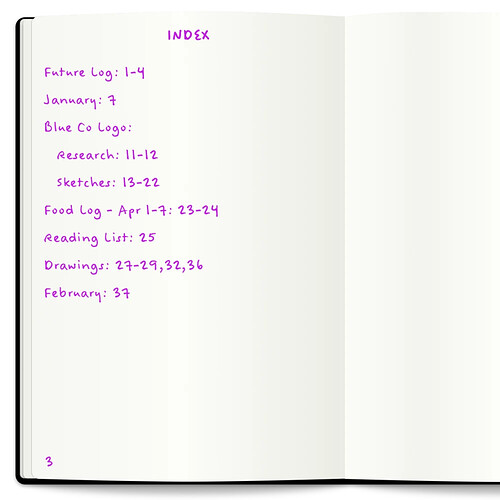 INDEX
Future Log: 1-4
January: 7
Blue Co Logo:
Research: 11-12
Sketches: 13-22
Food Log - Apr 1-7: 23-24
Reading List: 25
Drawings: 27-29,32,36
February: 37
3